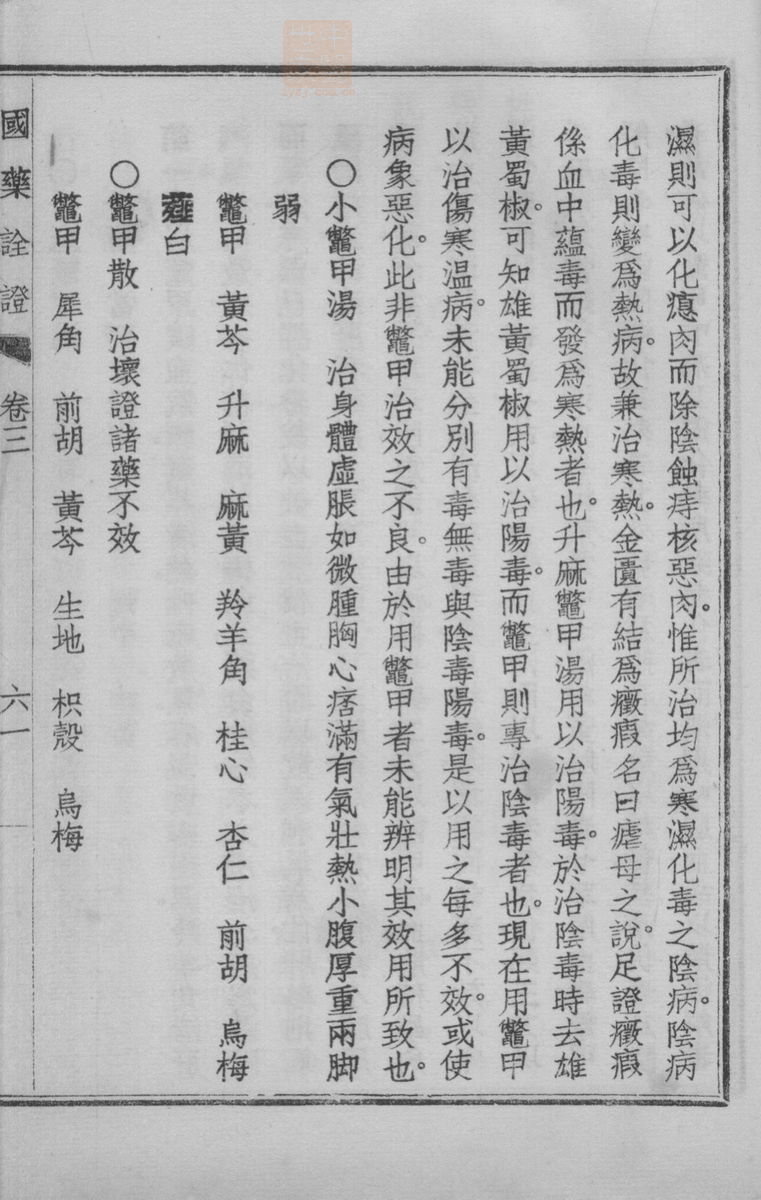 濕則可以化瘜肉而除陰蝕痔核惡肉。惟所治均爲寒濕化毒之陰病。陰病
化毒則變爲熱病。故兼治寒熱。金匱有結爲癥瘕名曰瘧母之說。足證癥瘕
係血中蘊毒而發爲寒熱者也。升麻鼈甲湯用以治陽毒。於治陰毒時去雄
黃蜀椒。可知雄黃蜀椒用以治陽毒。而鼈甲則專治陰毒者也。現在用鼈甲
以治傷寒温病。未能分別有毒無毒與陰毒陽毒。是以用之每多不效。或使
病象惡化。此非鼈甲治效之不良。由於用鼈甲者未能辨明其效用所致也。
〇小鼈甲湯　治身體虛脹如微腫胸心痞滿有氣壯熱小腹厚重兩脚
弱
鼈甲　黃芩　升麻　麻黃　羚羊角　桂心　杏仁　前胡　烏梅
薤白
〇鼈甲散　治壞證諸藥不效
鼈甲　犀角　前胡　黃芩　生地　枳殼　烏梅
國藥詮證　卷三　六一